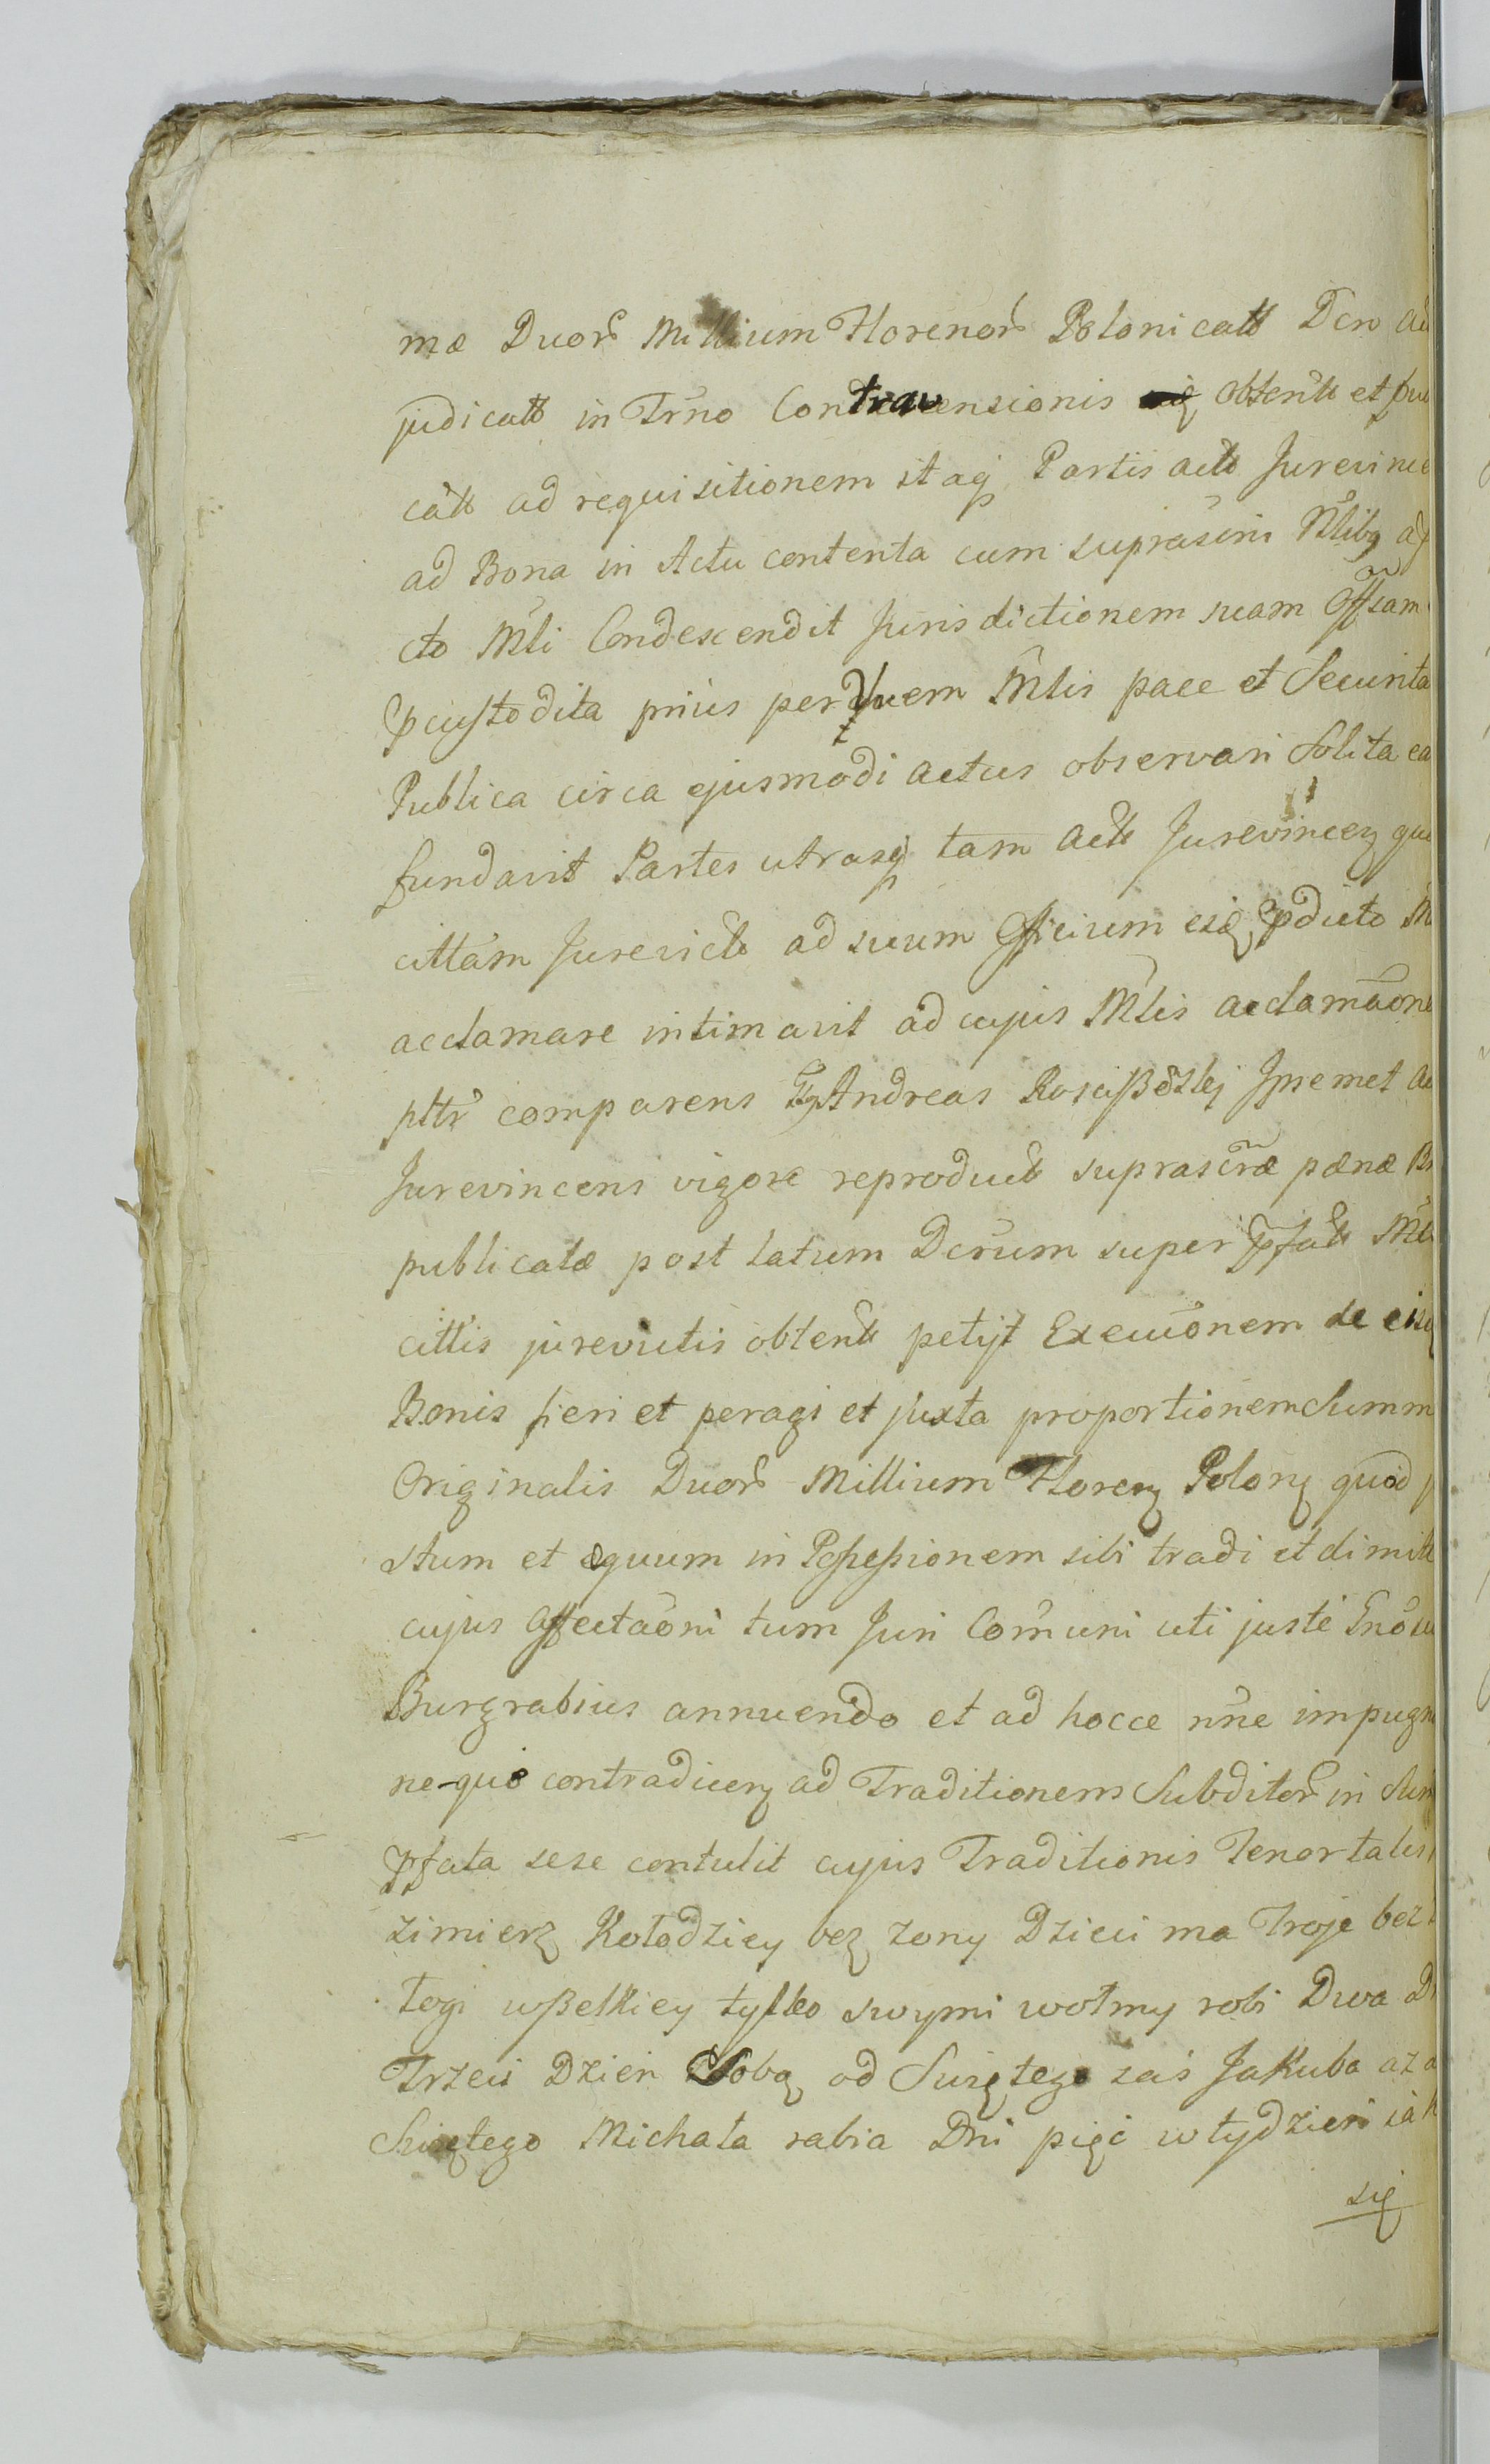 mæ Duor̃ Millium Florenor̃ Polonicall Dcn ad
judicatt in Trño Contravensionis obtentt et pu
catt ad requisitionem itaq Partis actt Jurevince
ad Bona in Actu contenta cum suprascris Mtlibq
cto Mtli Condescendit Jurisdictionem suam Offsam
Pcustodita priùs per Mtlis pace et Securita
Publica circa ejusmodi actus observari Solita ea
fundavit Partes utrasq tam actt Jurevincen qua
cittam Jurevictt ad suum Officium pducto M
acclamare intimavit ad cujus Mtlis acclamaõne
pttr comparens Andreas Ipsemet Ac
Jurevincens vigore reproductt suprascræ pænæ B
publicatæ post latum Dcrum super pfatt
cittis jurevictis obtentt petijt Execuõnem de eisq
Bonis fieri et peragi et juxta proportionem Summ
Originalis Duor̃ Millium Floren Polon quod
stum et æquum in Possessionem sibi tradi et dimitt
cujus Affectaõni tum Juri Com̃uni uti justé
Burgrabius annuendo et ad hocce nñe impugn
ne-què contradicen ad Traditionem Subditor̃ in Sum
Pfata sese contulit cujus Traditionis Tenor talis
zimierz Kołodziey bez zony Dzieci ma Troje bez
łogi wszelkiey tylko swymi wołmy robi Dwa D
Trzeci Dzien Sobą od Swiętego zaś Jakuba az
Swiętego Michała rabia Dni pięć w tydzien iak
się